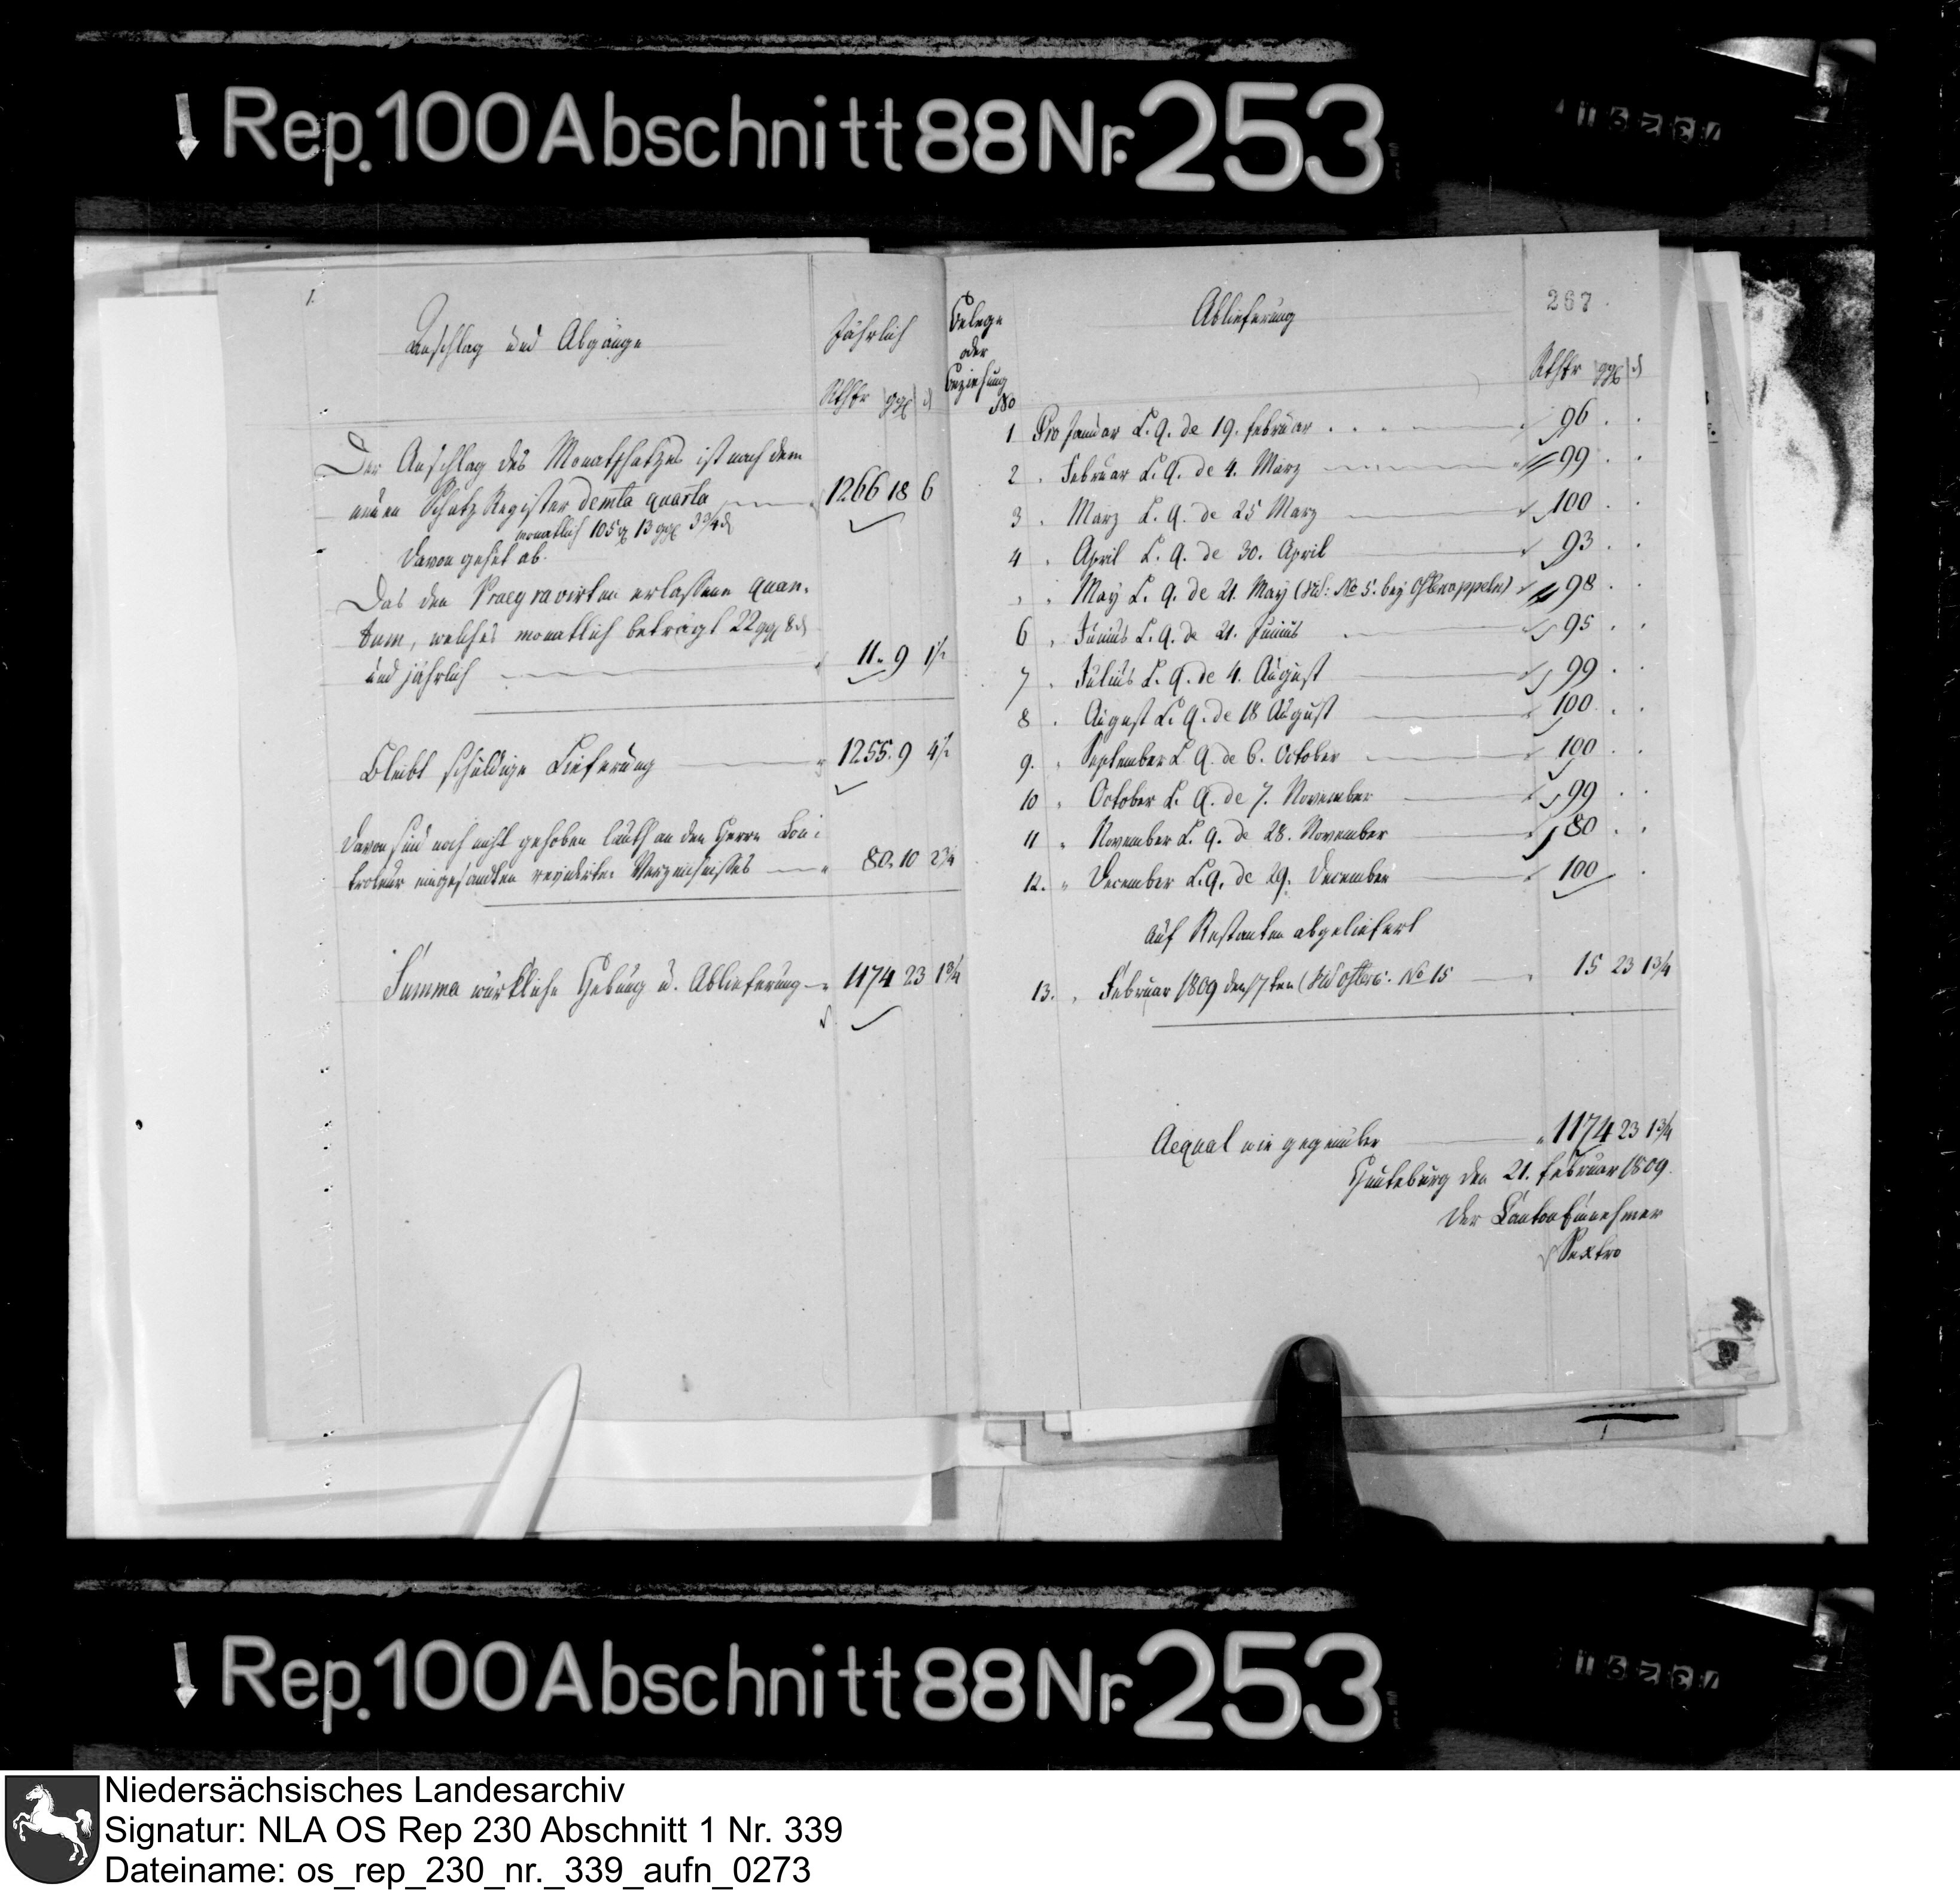 Rep. 100 Abschnitt 88 Nr. 253
1.
Anschlag und Abgänge
Jährlich
Rthlr ggl d
Der Anschlag des Monatschatzes ist nach dem
neuen Schatz Register demta quarta 1266 18 6
monatlich 105 13 ggl 3 3/4 d
Davon gehet ab.
Das den Praegravirten erlassene Quan-
tum, welches monatlich beträgt 22 ggl 8 d
und jährlich 11. 9 1 1/2
Bleibt schuldige Lieferung 1255. 9 4 1/2
Davon sind noch nicht gehoben lauth an den Herrn Con-
troleur eingesandten revidirten Verzeichnisses 80. 10 2 3/4
Summa würkliche Hebung u. Ablieferung 1174 23 1 3/4
Belege
oder
Beziehung
No
Ablieferung
267
Rthlr ggl d
1 Pro Januar L. Q. de 19. Februar 96 . .
2 Februar L. Q. de 4. März 99 . .
3 März L. Q. de 25 März 100 . .
4 April L. Q. de 30. April 93 . .
" May L. Q. de 21. May (No 5. bey Ostercappeln) 98 .
6 Junius L. Q. de 21. Junius 95 . .
7 Julius L. Q. de 4. August 99 . .
8 August L. Q. de 18 August 100 . .
9. September L Q. de 6. October 100 . .
10 October L. Q. de 7. November 99 . .
11 November L. Q. de 28. November 80 . .
12. December L. Q. de 29. December 100 .
auf Restanten abgeliefert
13. Februar 1809 den 17ten No 15 15 23 1 3/4
Aequal wie gegenüber 1174 23 1 3/4
Hunteburg den 21. Februar 1809.
Der Cantons Einnehmer
Sextro
Rep. 100 Abschnitt 88 Nr. 253
Niedersächsisches Landesarchiv
Signatur: NLA OS Rep 230 Abschnitt 1 Nr. 339
Dateiname: os_rep_230_nr._339_aufn_0273